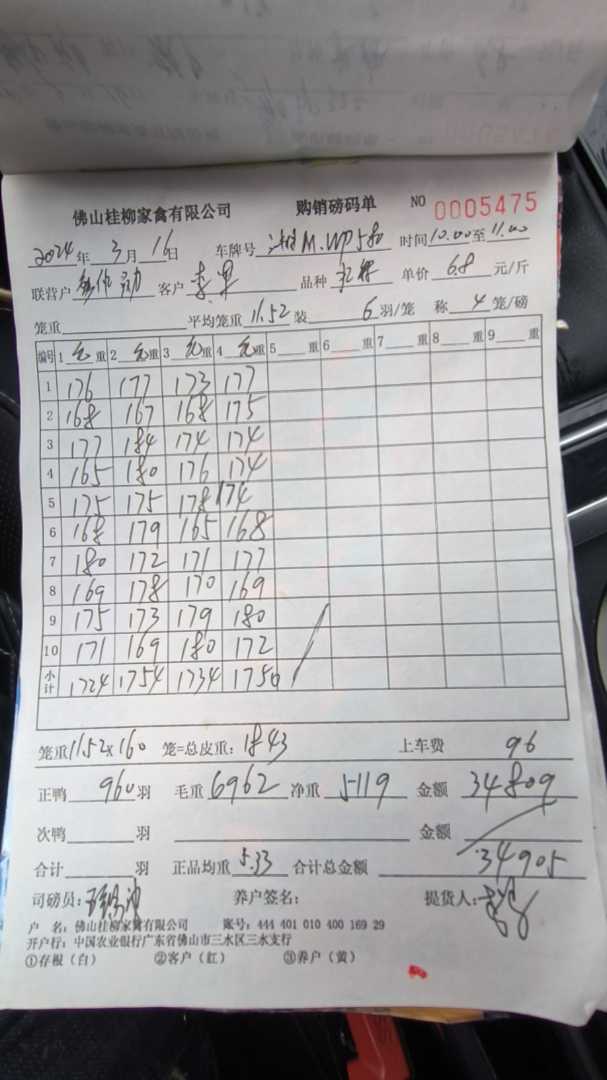 佛山桂柳家禽有限公司 购销磅码单 NO 0005475
2024年3月16日 车牌号 M.WD580 时间10.00至11.00
联营户 客户 李 品种 单价 6.8 元/斤
笼重 平均笼重 11.52 装 6 羽/笼 称 4 笼/磅
编号 1 毛 重 2 毛 重 3 毛 重 4 毛 重 5 重 6 重 7 重 8 重 9 重
1 176 177 173 177
2 168 167 168 175
3 177 184 174 174
4 165 180 176 174
5 175 175 178 174
6 168 179 165 168
7 180 172 171 177
8 169 178 170 169
9 175 173 179 180
10 171 169 180 172
小计 1724 1754 1734 1750
笼重 11.52×160 笼=总皮重: 1843 上车费 96
正鸭 960 羽 毛重 6962 净重 5119 金额 34809
次鸭 羽 金额
合计 羽 正品均重 5.33 合计总金额 34905
司磅员: 养户签名: 提货人:
户 名: 佛山桂柳家禽有限公司 账号: 444 401 010 400 169 29
开户行: 中国农业银行广东省佛山市三水区三水支行
①存根（白） ②客户（红） ③养户（黄）